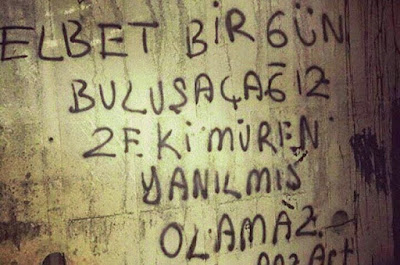 ELBET BİR GÜN
BULUŞAÇAĞIZ
ZEKİ MÜREN
YANILMIŞ
OLAMAZ.